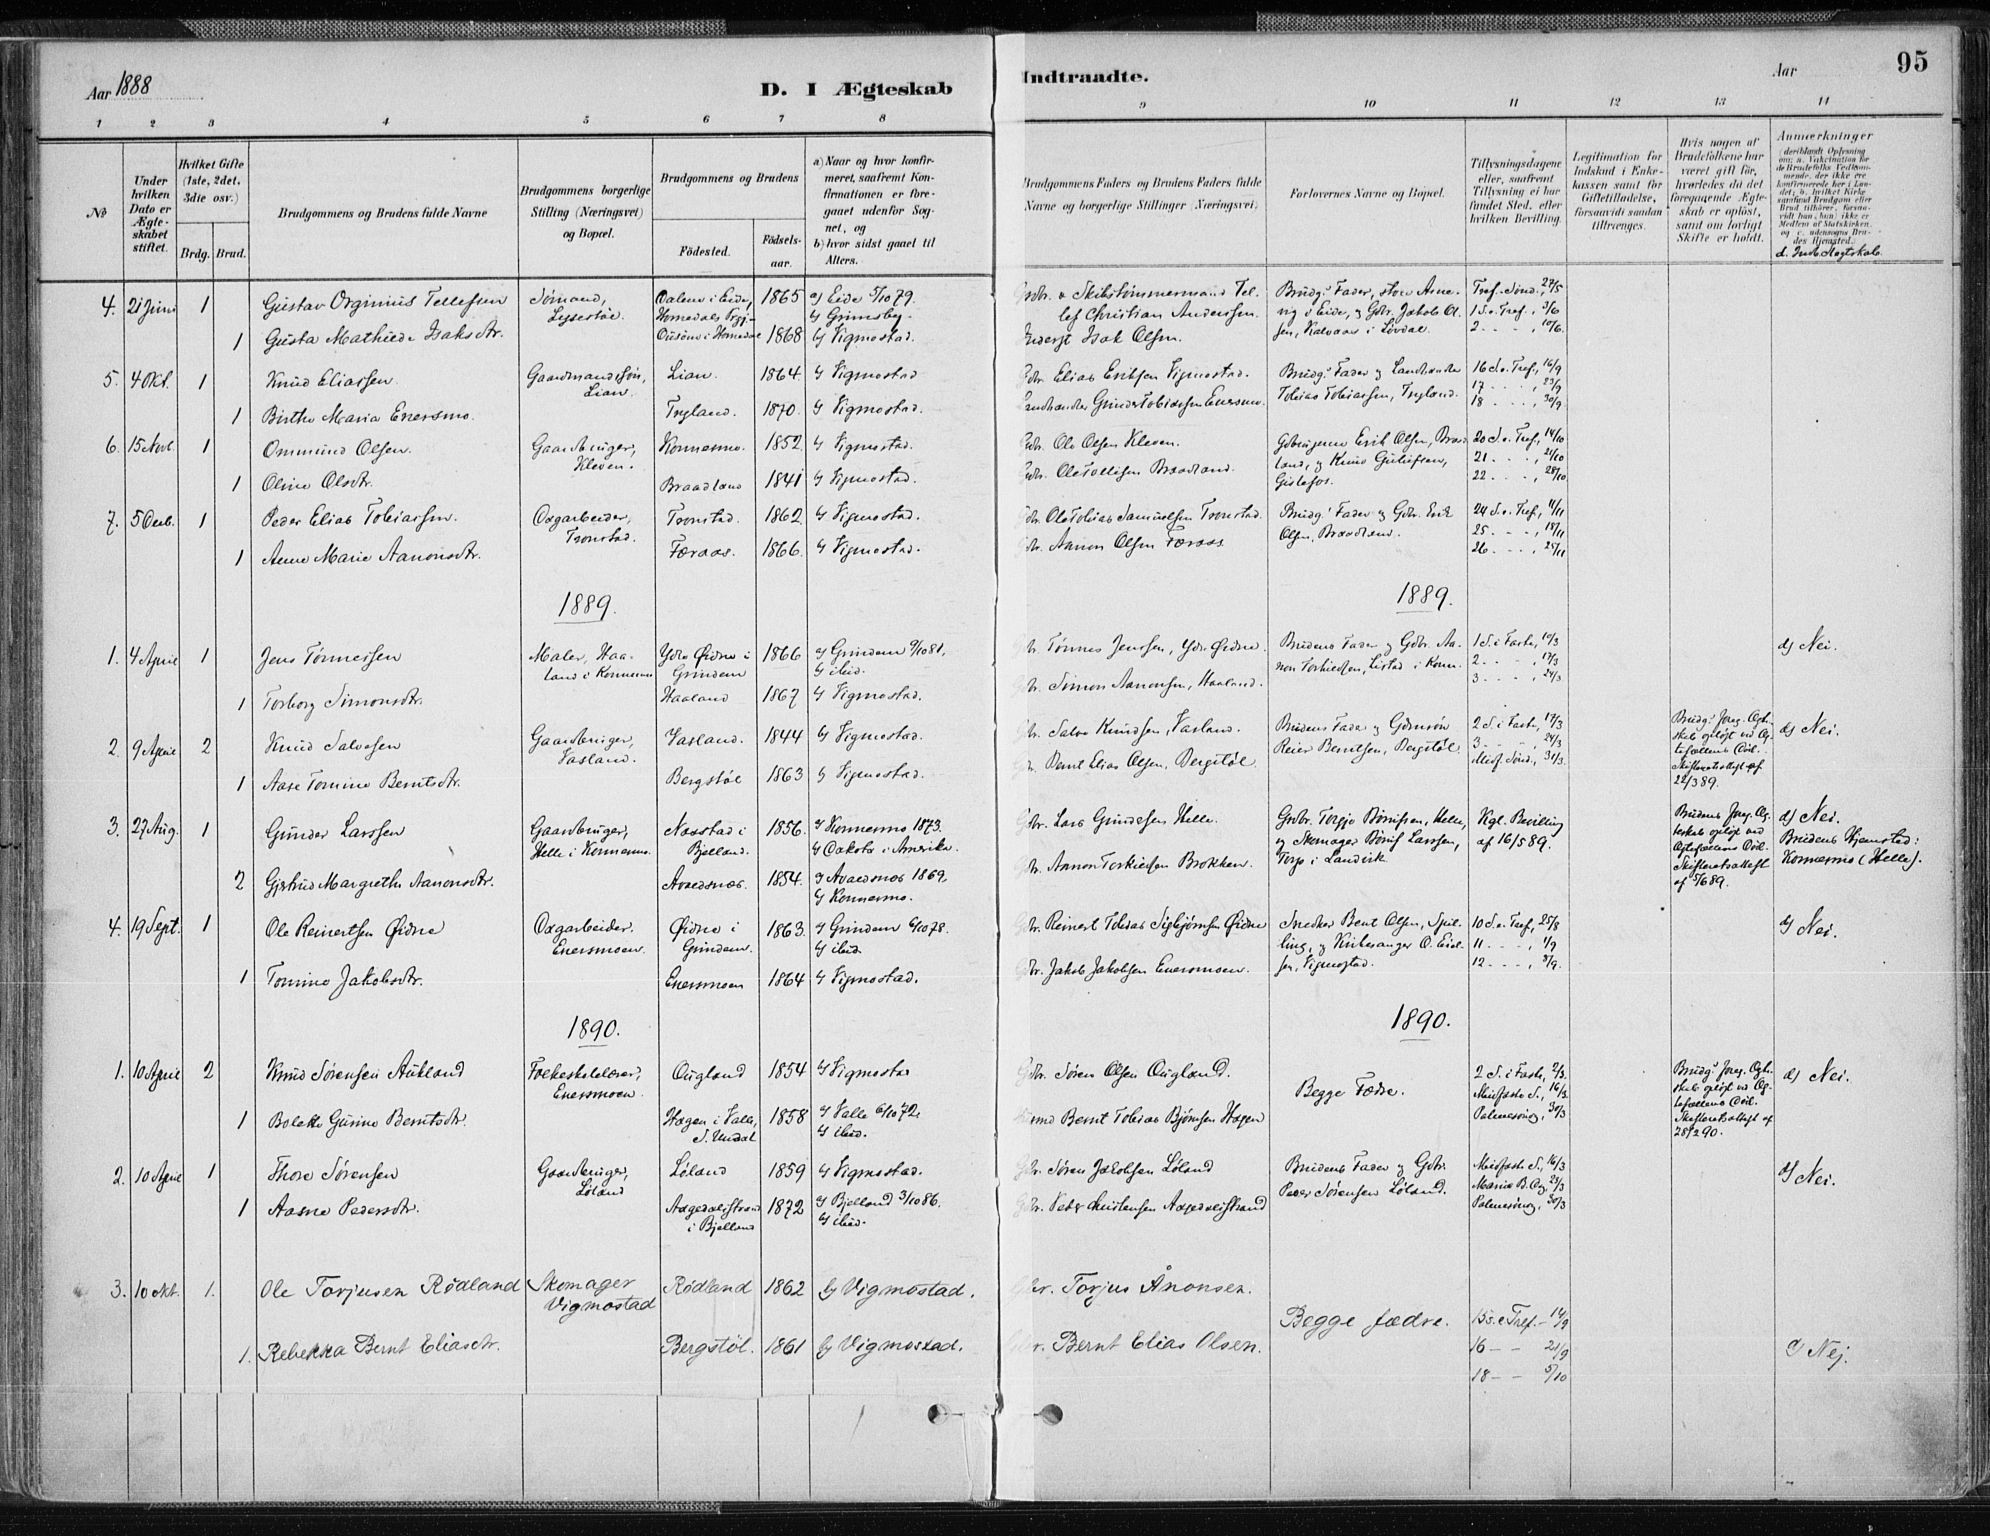 Aar 1888
D. I Ægteskab Indtraadte.
Aar
95
1 2 3 4 5 6 7 8 9 10 11 12 13 14
№
Under hvilken Dato er Ægteskabet stiftet.
Hvilket Gifte (1ste, 2det, 3die osv.)
Brdg. Brud.
Brudgommens og Brudens fulde Navne
Brudgommens borgerlige Stilling (Næringsvei) og Bopæl.
Brudgommens og Brudens
Födested.
Födsels-aar.
a) Naar og hvor konfirmeret, saafremt Konfirmationen er foregaaet udenfor Sognet, og
b) hvor sidst gaaet til Alters.
Brudgommens Faders og Brudens Faders fulde Navne og borgerlige Stillinger (Næringsvei)
Forlovernes Navne og Bopæl.
Tillysningsdagene eller, saafremt Tillysning ei har fundet Sted, efter hvilken Bevilling.
Legitimation for Indskud i Enkekassen samt for Giftetilladelse, forsaavidt saadan tiltrænges.
Hvis nogen af Brudefolkene har været gift för, hvorledes da det foregaaende Ægteskab er oplöst, samt om lovligt Skifte er holdt.
Anmærkninger
d. Indb. Slægtskab.
4. 21 Juni 1 Gustav Orginius Tellefsen Sömand, Dalene i Eide, 1865 a) Eide 5/10 79. b) Grimsby.
Skibstömmermand Tellef Christian Anderssen.
1 Gusta Mathilde Isaksdtr. 1868 b) Vigmostad. Isak Olsen.
Tref. Sönd., 27/5
1 S. e. Tref., 3/6
2 - - -, 10/6.
5. 4 Okt. 1 Knud Eliassen. Gaardmandssön, Lian. Lian. 1864. b) Vigmostad Gdbr. Elias Eriksen Vigmostad.
Brudgs. Fader og Landhandler Tobias Tobiassen, Tryland.
16 S. e. Tref., 16/9
17 - - -, 23/9
18 - - -, 30/9
1 Birthe Maria Enersmo. Tryland. 1870. b) Vigmostad. Landhandler Gunder Tobiassen Enersmo.
6. 15 Novb. 1 Ommund Olsen. Gaardbruger, Kleven. Konnesmo. 1852. b) Vigmostad. Gdbr. Ole Olsen Kleven.
Gdbrugerne Erik Olsen, Braadland, og Knud
20 S. e. Tref., 14/10
21 - - -, 21/10
22 - - -, 28/10
1 Oline Olsdtr. Braadland 1841 b) Vigmostad. Gdbr. Ole Tollefsen Braadland.
7. 5 Decb. 1 Peder Elias Tobiassen. Dagarbeider, Tronstad. Tronstad. 1862. b) Vigmostad. Gdbr. Ole Tobias Samuelsen Tronstad.
Brudgs. Fader og Gdbr. Erik Olsen, Braadland.
24 S. e. Tref., 11/11
25 - - -, 18/11
26 - - -, 25/11
1 Anne Marie Aanonsdtr. Færaas. 1866. b) Vigmostad. Gdbr. Aanon Olsen Færaas.
1889. 1889.
1. 4 April 1 Jens Tönnessen Maler, Haaland i Konnesmo Ydre Øidne i Grindem 1866 a) Grindem 9/10 81. b) ibid. Gdbr. Tönnes Jenssen, Ydr. Øidne.
Brudens Fader og Gdbr. Aanon Torkildsen, Listad i Konn.
1 S. i Faste, 10/3
2 - - -, 17/3
3 - - -, 24/3
d) Nei.
1 Torborg Simonsdtr. Haaland 1867 b) Vigmostad. Gdbr. Simon Aanonsen, Haaland.
2. 9 April 2 Knud Salvesen Gaardbruger, Vasland. Vasland. 1844 b) Vigmostad. Gdbr. Salve Knudsen, Vasland.
Brudens Fader og Gdmsön Reier Berntsen, Bergstöl.
2 S. i Faste, 17/3
3 - - -, 24/3
Midf. Sönd., 31/3.
Brudgs. foreg. Ægteskab oplöst ved Ægtefællens Död. Skifteretsattest af 22/3 89.
d) Nei.
1 Aase Tomine Berntsdtr. Bergstöl 1863 b) Vigmostad. Gdbr. Bernt Elias Olsen, Bergstöl
3. 27 Aug. 1 Gunder Larssen Gaardbruger, Helle i Konnesmo. Naastad i Bjelland. 1856. a) Konnesmo 1873. b) Dakota i Amerika. Gdbr. Lars Gundersen Helle.
Kgl. Bevilling af 16/5 89.
Brudens foreg. Ægteskab oplöst ved Ægtefællens Död. Skifteretsattest af 5/6 89.
d) Nei. Brudens Hjemsted: Konnesmo (Helle).
2 Gjertrud Margrethe Aanonsdtr. Avaldsnæs. 1854. a) Avaldsnæs 1869. b) Konnesmo. Gdbr. Aanon Torkildsen Brokken.
4. 19 Sept. 1 Ole Reinertsen Øidne Dagarbeider. Enersmoen. Øidne i Grindem. 1863. a) Grindem 6/10 78. b) ibid. Gdbr. Reinert Tobias Sigbjörnsen Øidne
Snedker Bent Olsen, Spilling, og Kirkesanger O. Eielsen, Vigmostad.
10 S. e. Tref., 25/8
11 - - -, 1/9
12 - - -, 8/9.
d) Nei.
1 Tomine Jakobsdtr. Enersmoen 1864 b) Vigmostad. Gdbr. Jakob Jakobsen Enersmoen.
1890. 1890.
1. 10 April 2 Knud Sörensen Aukland Folkeskolelærer, Enersmoen. Ougland 1854 b) Vigmostad Gdbr. Sören Olsen Ougland.
Begge Fædre.
2 S. i Faste, 2/3.
Midfaste S., 16/3
Palmesöndag, 30/3
Brudgs. foreg. Ægteskab oplöst ved Ægtefællens Död. Skifteretsattest af 28/2 90.
d) Nei.
1 Bolette Gurine Berntsdtr. Hagen i Valle, S. Undal 1858 a) Valle 6/10 72. b) ibid. Bernt Tobias Björnsen Hagen
2. 10 April 1 Thore Sörensen Gaardbruger, Löland Löland 1859 b) Vigmostad. Gdbr. Sören Jakobsen Löland
Brudens Fader og Gdbr. Peder Sörensen Löland.
Midfaste S., 16/3
Mariæ B. Dag, 23/3
Palmesöndag, 30/3
d) Nei.
1 Aasne Pedersdtr. Aagedalstrand i Bjelland 1872 a) Bjelland 3/10 86. b) ibid. Gdbr. Peder Aagedalstrand
3. 10 okt. 1. Ole Torjusen Rødland Skomager Vigmostad Rødland 1862 b) Vigmostad. Gdbr. Torjus Ånonsen.
Begge fædre.
15 s. e Tref. - 14/9
16 - - 21/9
18 - - 5/10
1. Rebekka Bernt Eliasdtr. Bergstöl. 1861 b) Vigmostad. Gdbr. Bernt Elias Olsen.
d) Nej.